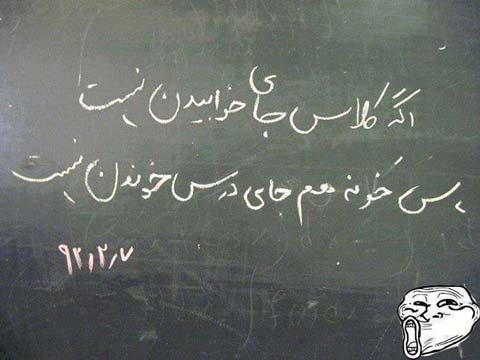 اگه کلاس جای خوابیدن نیست
پس خونه هم جای درس خوندن نیست
۹۲٫۲٫۷